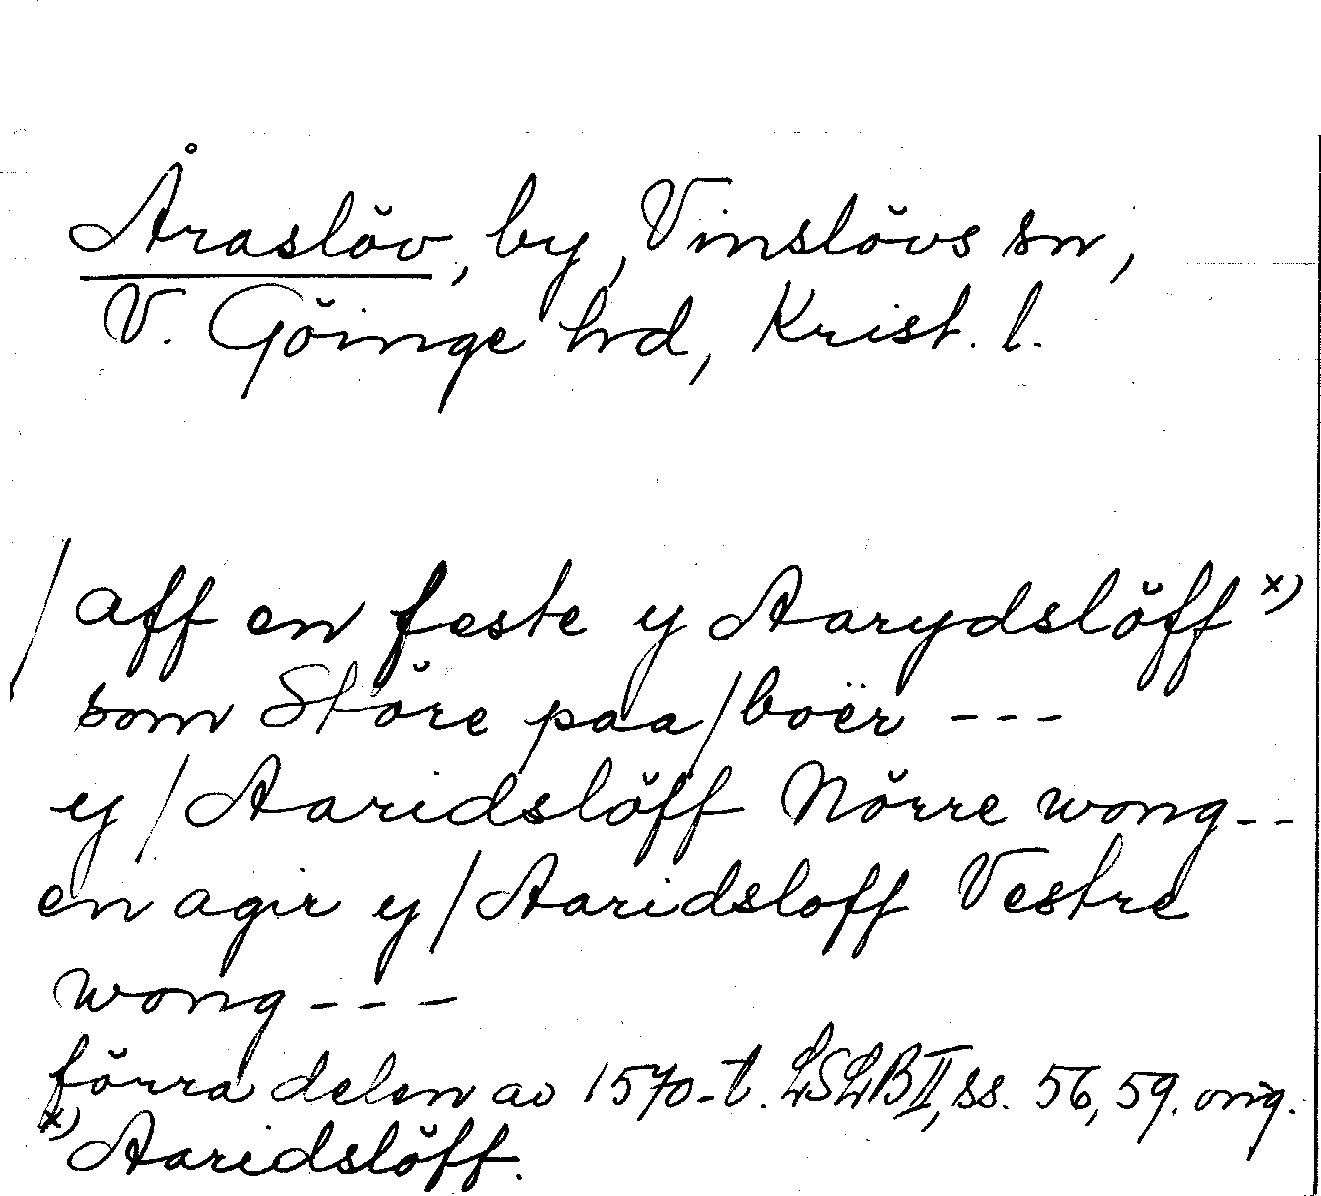 Åraslöv, by, Vinslövs sn,
V. Göinge hrd, Krist. l.
/ aff en feste y Aarydslöff x)
som Störe paa / boër ---
y / Aaridslöff Nörre wong --
en agir y / Aaridsloff Vestre
wong ---
förra delen av 1570-t. LSLB II, ss. 56, 59. orig.
x) Aaridslöff.